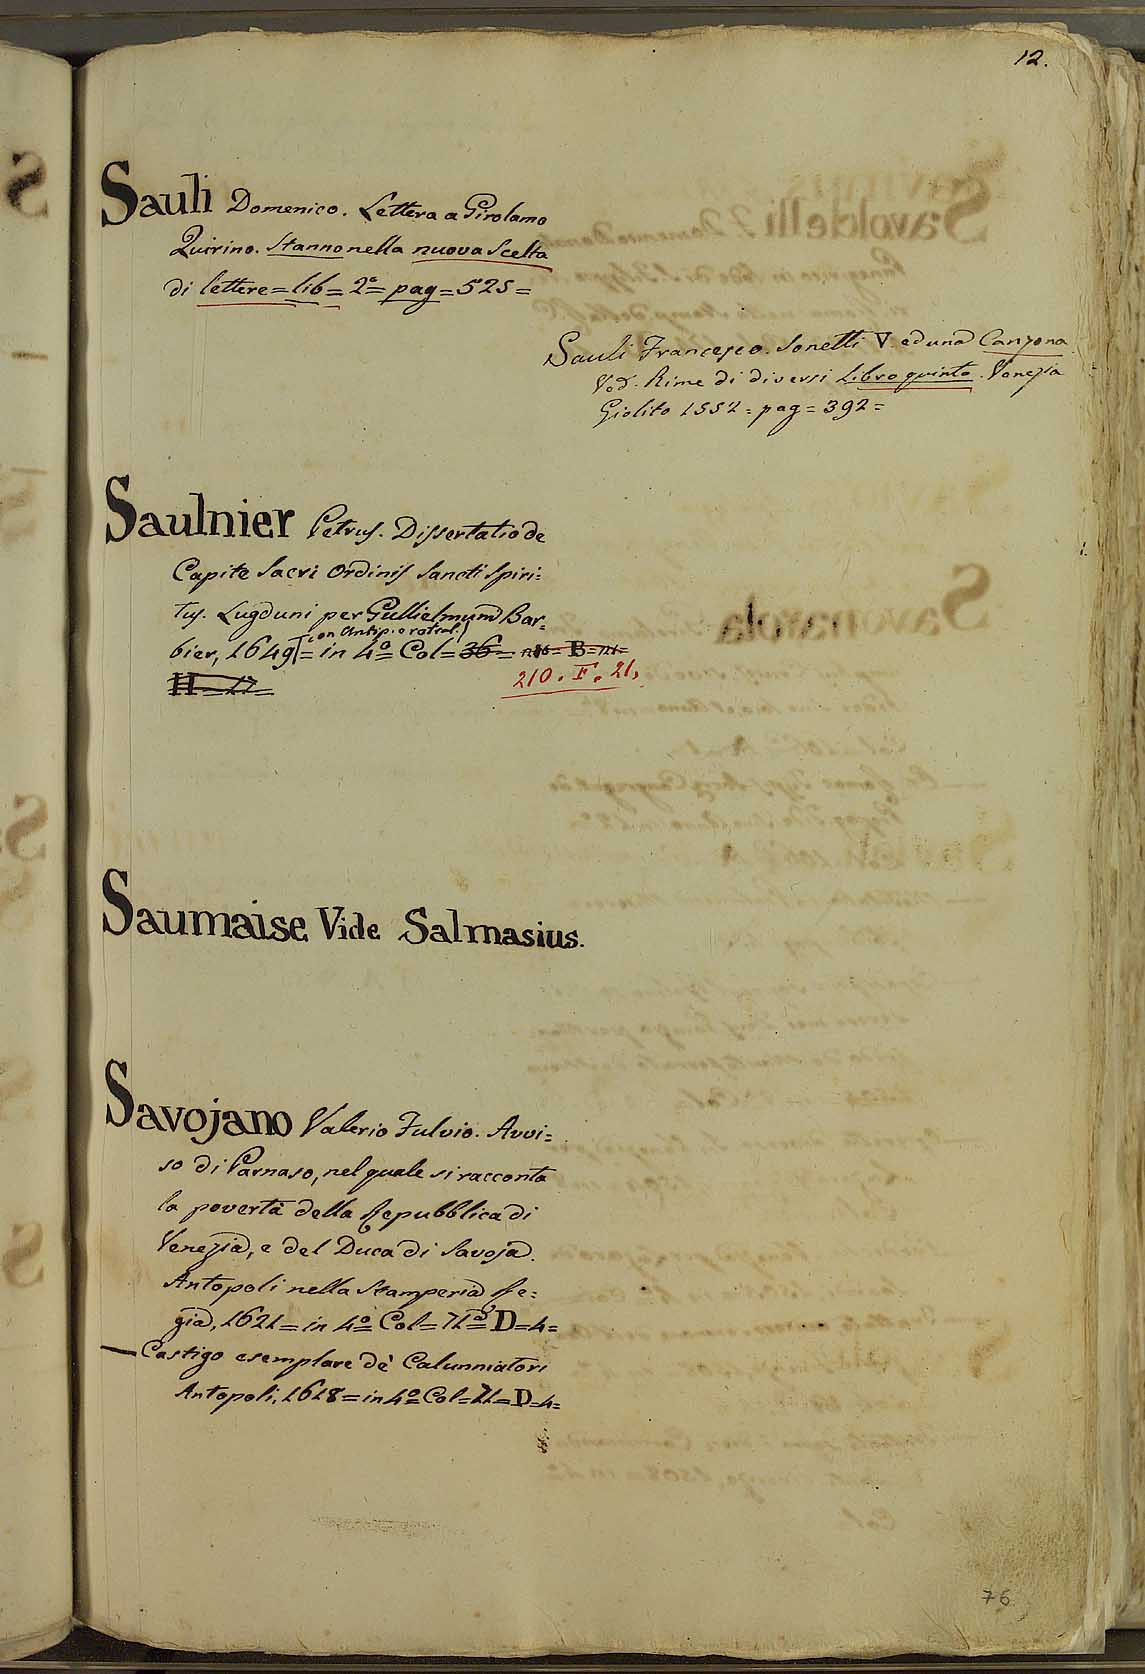 12.
Sauli Domenico. Lettera a Girolamo
Quirino. Stanno nella nuova Scelta
di lettere = lib = 2º = pag = 525 =
Sauli Francesco. Sonetti V. ed una Canzona.
Ved. Rime di diversi Libro quinto. Venezia
Giolito 1552 = pag = 392 =
Saulnier Petrus. Dissertatio de
Capite Sacri Ordinis Sancti Spiri=
tus. Lugduni per Gullielmum Bar=
con Antip. o ratrat.)
bier, 1649 = in 4º Col = 36 = B =
210. F. 21,
H = 17 =
Saumaise Vide Salmasius.
Savojano Valerio Fulvio. Avvi=
so di Parnaso, nel quale si racconta
la povertà della Repubblica di
Venezia, e del Duca di Savoja.
Antopoli nella Stamperia Re=
gia, 1621 = in 4º Col = 71 = D = 4 =
— Castigo esemplare dè Calunniatori
Antopoli, 1618 = in 4º Col = 71 = D = 4 =
76